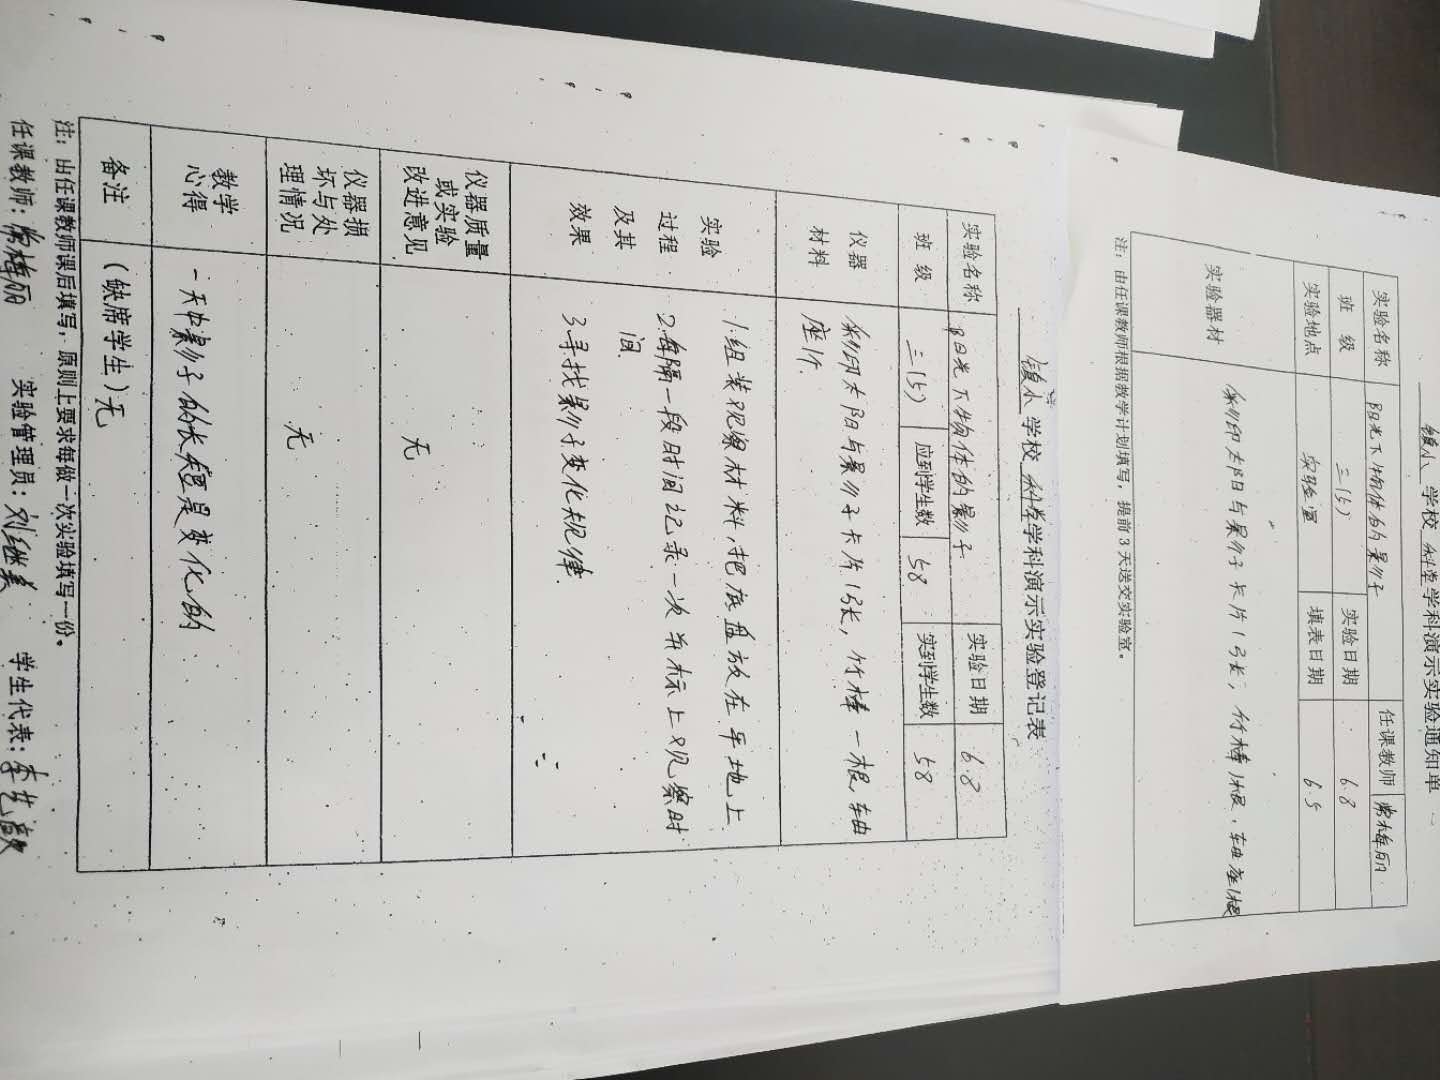 镇小 学校 科学 学科演示实验通知单
实验名称 阳光下物体的影子 任课教师 常梅丽
班 级 三(5) 实验日期 6.8
实验地点 实验室 填表日期 6.5
实验器材 彩印太阳与影子卡片13张,竹棒1根,轴座1根
注:由任课教师根据教学计划填写,提前3天送交实验室。
镇小 学校 科学 学科演示实验登记表
实验名称 阳光下物体的影子 实验日期 6.8
班 级 三(5) 应到学生数 58 实到学生数 58
仪器 彩印太阳与影子卡片13张,竹棒一根,轴
材料 座1个
实验 1.组装观察材料,把底盘放在平地上
过程 2.每隔一段时间记录一次并标上观察时
及其 间
效果 3.寻找影子变化规律
仪器质量
或实验
改进意见 无
仪器损
坏与处
理情况 无
教学
心得 一天中影子的长短是变化的
备注 (缺席学生)无
注:由任课教师课后填写,原则上要求每做一次实验填写一份。
任课教师:常梅丽 实验管理员:刘继美 学生代表:李艺